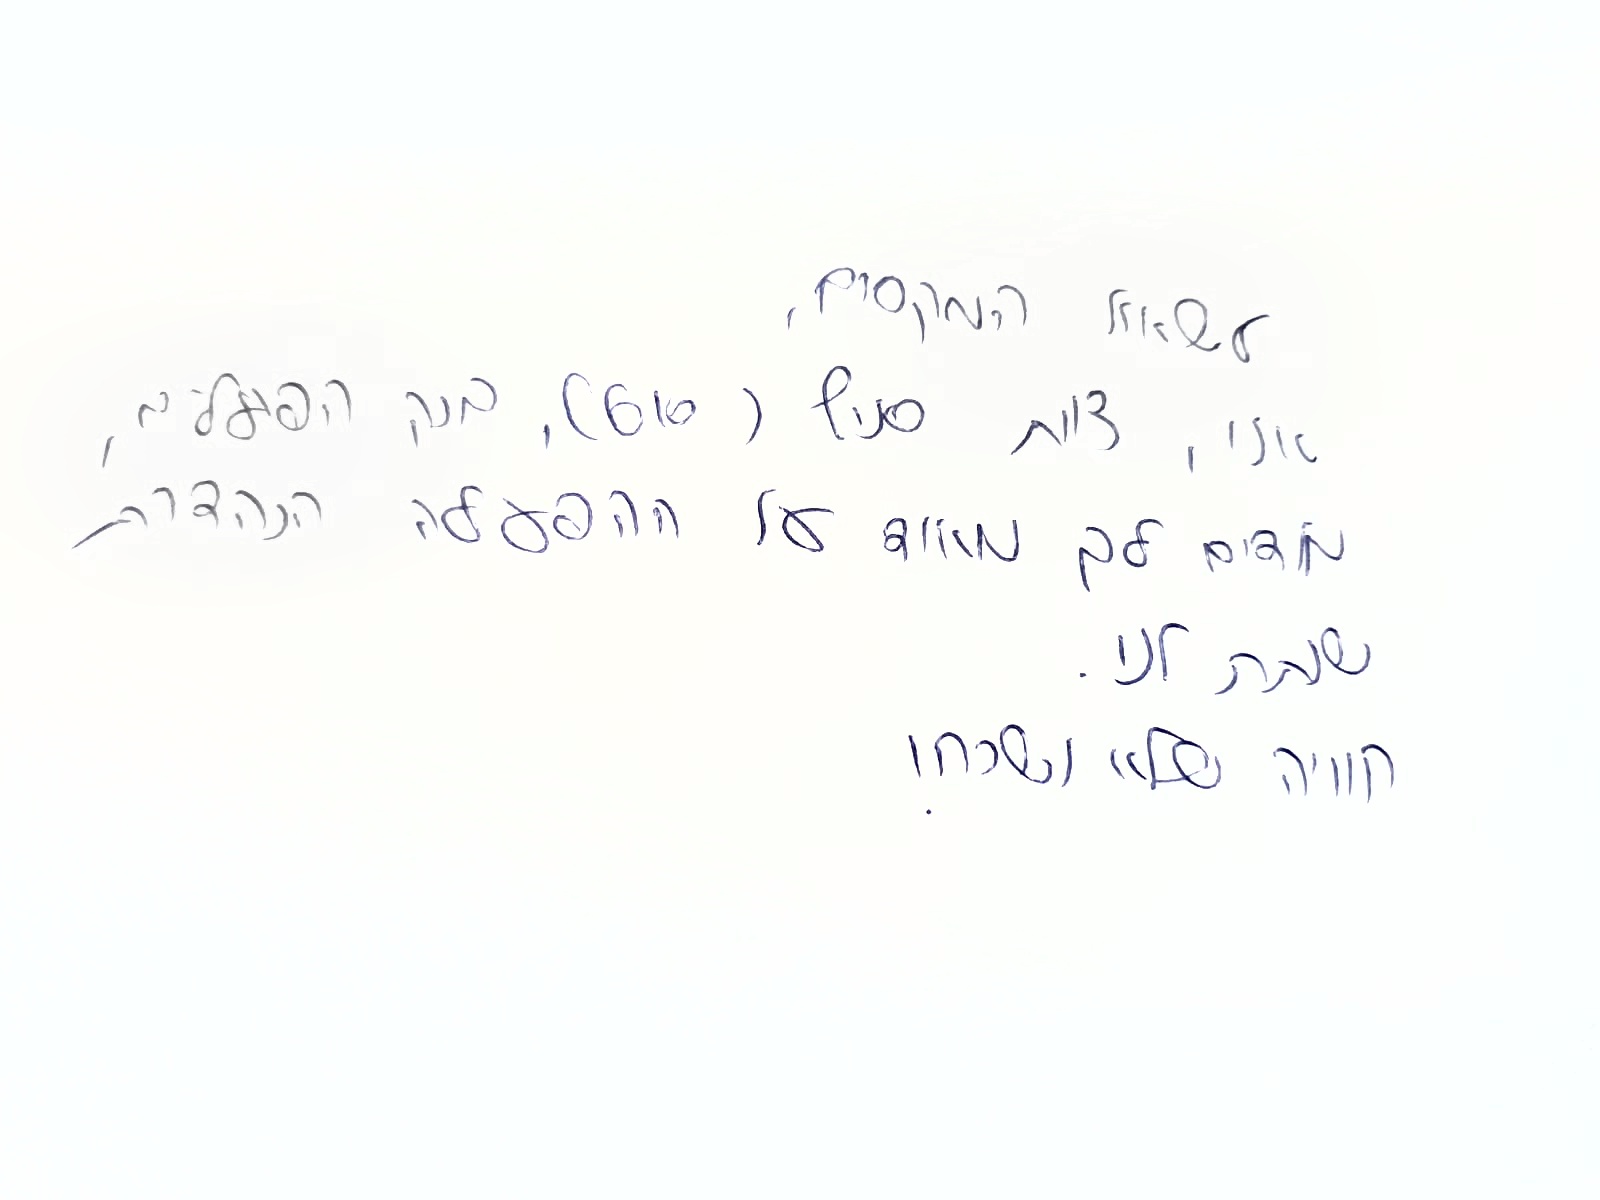 לשאול המקסים,
אנו, צוות סניף (סוט), בנק הפועלים,
מודים לך מאוד על ההפעלה הנהדרת
שנתת לנו.
חוויה שלא נשכח!